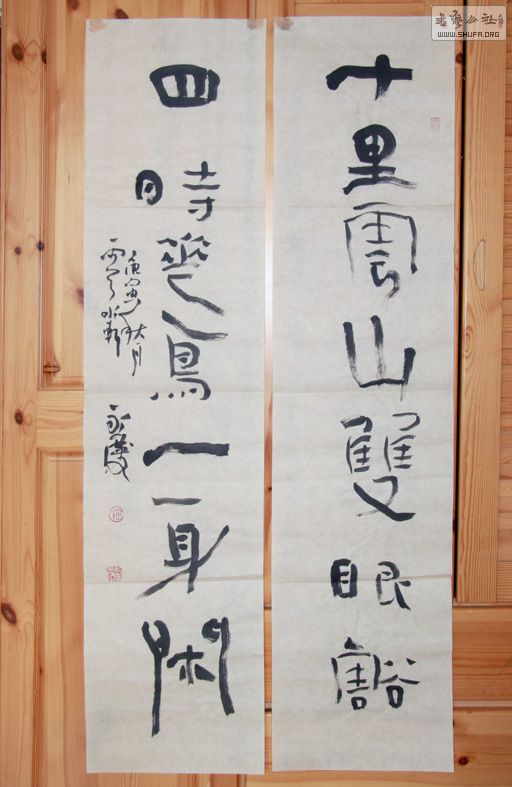 十里雲山雙眼豁
四時花鳥一身閑
庚寅秋月
永慶
書藝公社
WWW.SHUFA.ORG